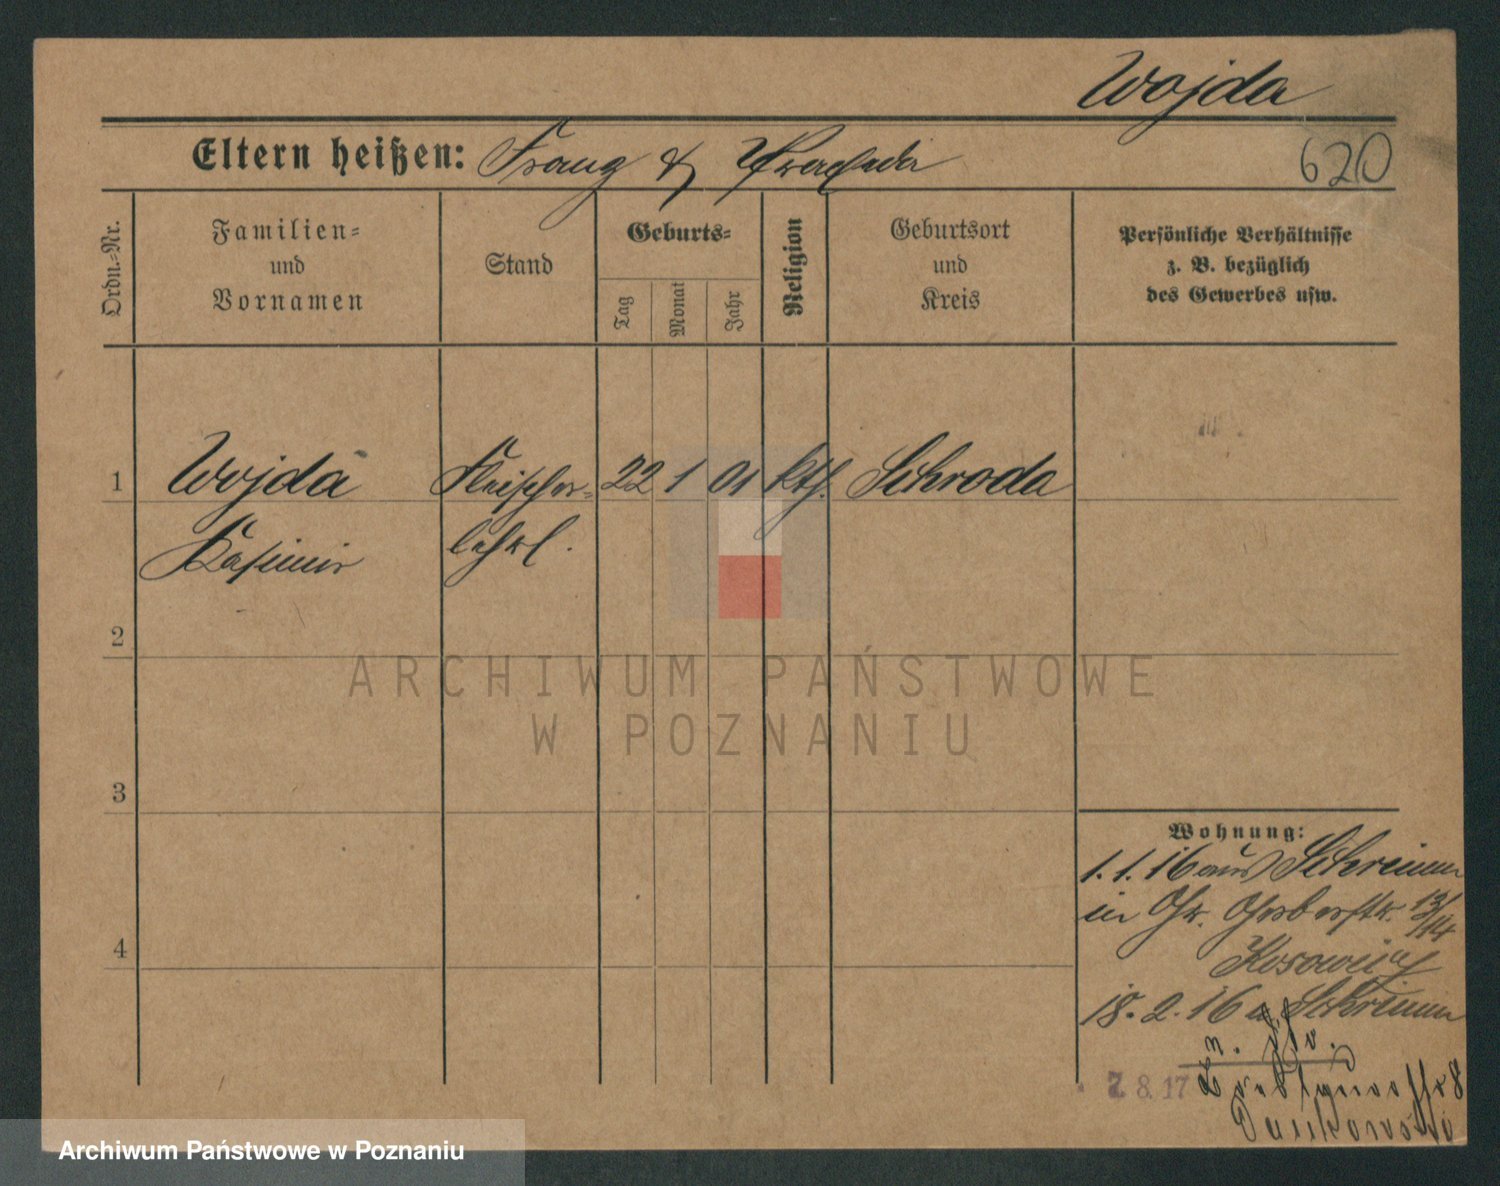 Wojda
620
Eltern heißen: Franz &
Ordn.-Nr.
Familien-
und
Vornamen
Stand
Geburts-
Tag
Monat
Jahr
Religion
Geburtsort
und
Kreis
Persönliche Verhältnisse
z. B. bezüglich
des Gewerbes usw.
1 Wojda Fleischer- 22 1 01 kth. Schroda
Kasimir lehrl.
2
3
4
Wohnung:
1. 1. 16 aus Schrimm
in 13/14
18. 2. 16 Schrimm
n.
7. 8. 17
8
ARCHIWUM PAŃSTWOWE
W POZNANIU
Archiwum Państwowe w Poznaniu